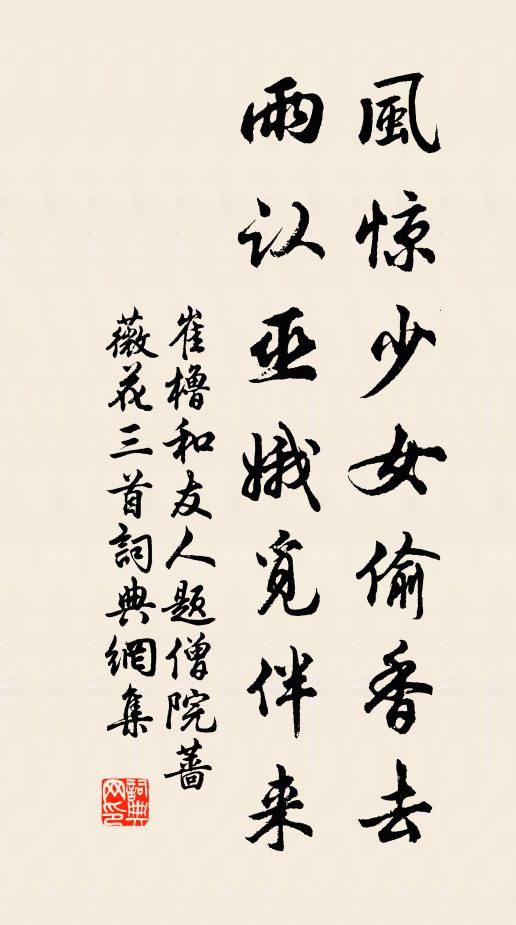 風惊少女偷香去
雨认巫娥觅伴来
崔櫓和友人题僧院蔷
薇花三首詞典網集
詞典网印